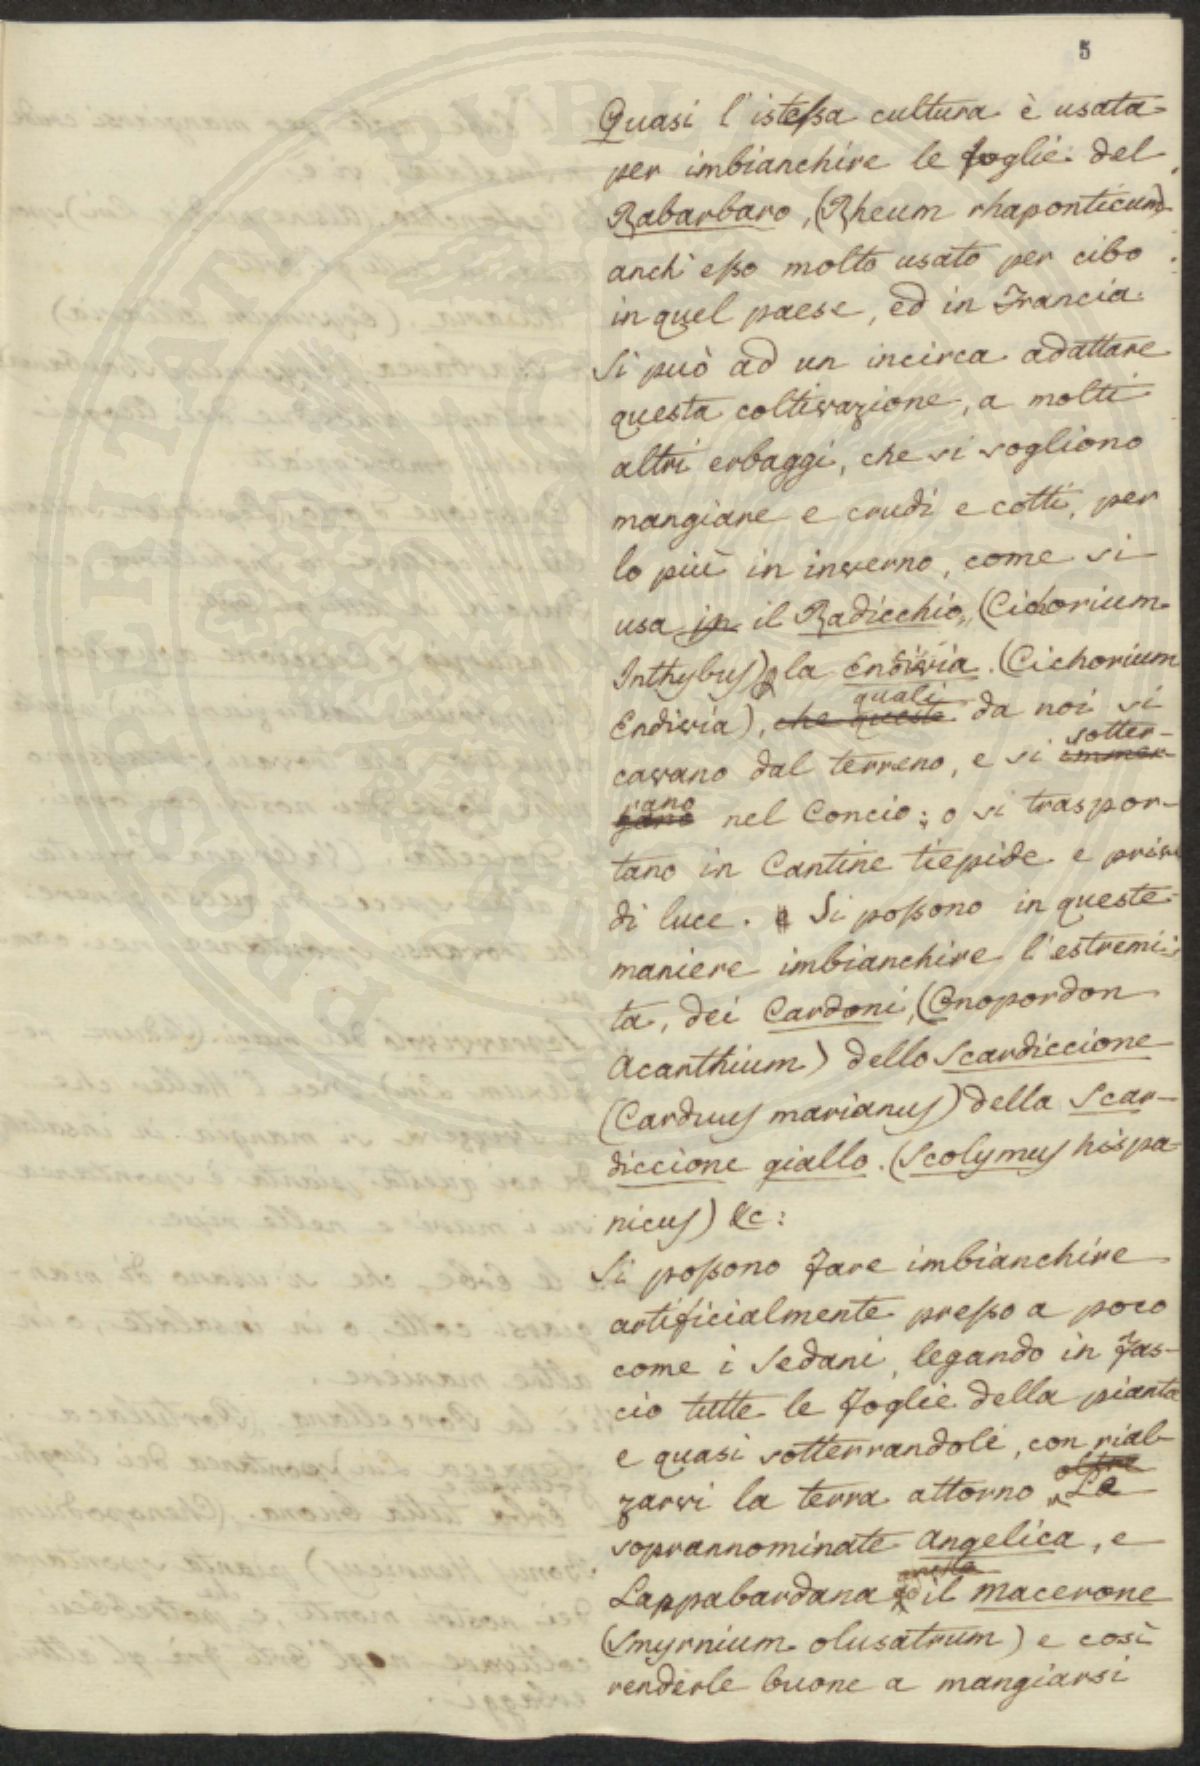 5
Quasi l'istessa cultura è usata
per imbianchire le foglie del
Rabarbaro, (Rheum rhaponticum)
anch'esso molto usato per cibo
in quel paese, ed in Francia.
Si può ad un incirca adattare
questa coltivazione, a molti
altri erbaggi, che si vogliono
mangiare e crudi e cotti, per
lo più in inverno, come si
usa in il Radicchio, (Cichorium
Inthybus) la Endivia. (Cichorium
quali
Endivia), che queste da noi si
sotter-
cavano dal terreno, e si immer-
rano
gano nel Concio; o si traspor-
tano in Cantine tiepide e prive
di luce. e Si possono in queste
maniere imbianchire l'estremi-
ta, dei Cardoni, (Onopordon
Acanthium) dello Scardiccione
(Carduus marianus) della Scar-
diccione giallo. (Scolymus hispa-
nicus) &c:
Si possono fare imbianchire
artificialmente presso a poco
come i Sedani, legando in fas-
cio tutte le foglie della pianta
e quasi sotterrandole, con rial-
oltre
zarvi la terra attorno Le
soprannominate Angelica, e
Lappabardana il Macerone
(Smyrnium olusatrum) e così
renderle buone a mangiarsi